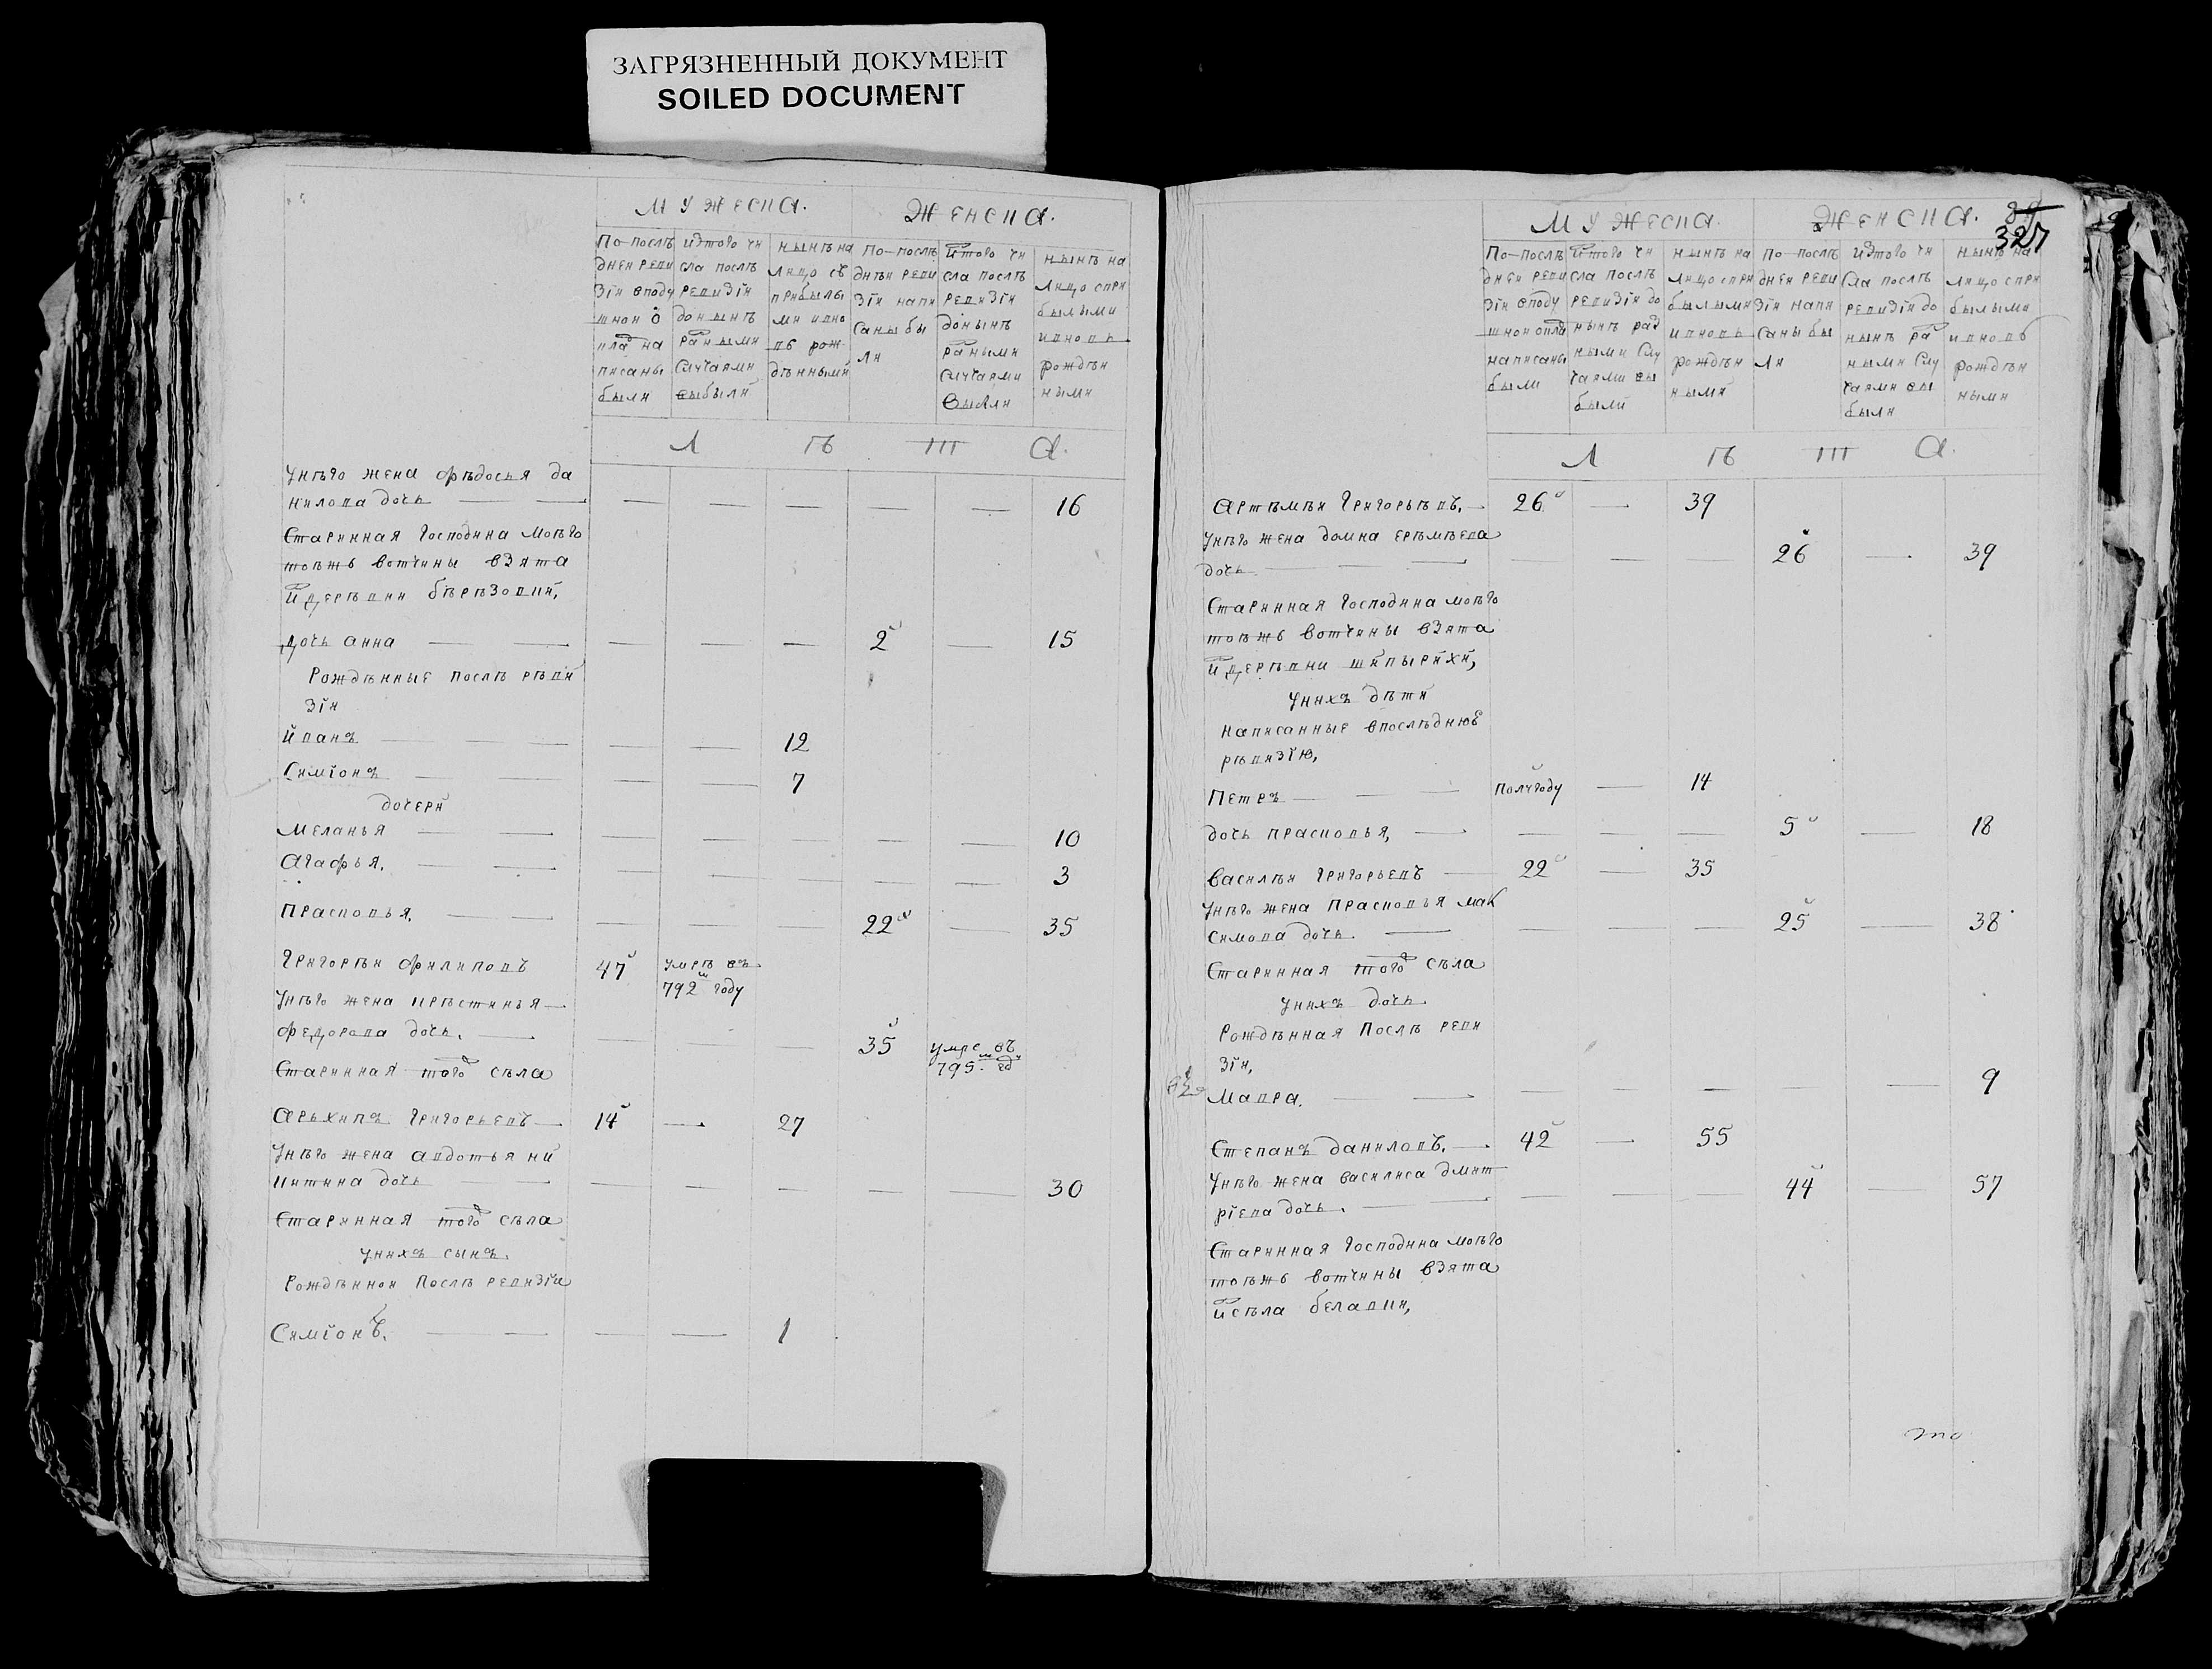 ЗАГРЯЗНЕННЫЙ ДОКУМЕНТ
SOILED DOCUMENT
Мужеска. Женска.
По послѣ
дней реви
зiи в поду
шной ѡ
клад на
писаны
были
Из того чи
сла послѣ
ревизiи
до нынѣ
разными
случаями
выбыли
нынѣ на
лицо съ
прибылы
ми и вно
въ рож
дѣнными
По послѣ
днѣй реви
зiи напи
саны бы
ли
Из того чи
сла послѣ
ревизiи
до нынѣ
разными
случаями
выбыли
нынѣ на
лицо с при
былыми
и вновь
рождѣн
ными
Л ѣ т а.
у нѣго жена фѣдосья да
нилова дочь — — — — — — — 16
Старинная Господина моѣго
тоѣжъ вотчины взята
из дерѣвни бѣрѣзовки,
дочь анна — — — — — 2 — 15
Рожденные послѣ рѣви
зiи
иванъ — — — — 12
Симiонъ — — — — 7
дочери
меланья — — — — — — — 10
агафья. — — — — — — — 3
Прасковья. — — — — — 22 — 35
Григорѣй филиповъ 47 умрѣ въ
792 году
у нѣго жена крѣстинья
федорова дочь. — — — — 35 умре въ
795 год
Старинная того сѣла
Арьхипъ Григорьевъ — 14 — 27
у нѣго жена авдотья ни
китина дочь — — — — — — — 30
Старинная того сѣла
у нихъ сынъ.
Рождѣнной послѣ ревизiи
Симiонъ. — — — — 1
89
327
Мужеска. Женска.
По послѣ
дней реви
зiи в поду
шной оклад
написаны
были
Из того чи
сла послѣ
ревизiи до
нынѣ раз
ными слу
чаями вы
были
нынѣ на
лицо с при
былыми
и вновь
рождѣн
ными
По послѣ
дней реви
зiи напи
саны бы
ли
Из того чи
сла послѣ
ревизiи до
нынѣ раз
ными слу
чаями вы
были
нынѣ на
лицо с при
былыми
и вновь
рождѣн
ными
Л ѣ т а.
Артѣмѣй Григорьѣвъ. — 26 — 39
у нѣго жена домна ерѣмѣева
дочь. — — — — — 26 — 39
Старинная Господина моѣго
тоѣжъ вотчины взята
из дерѣвни шипырихи,
у нихъ дѣти
написанные в послѣднюѣ
рѣвизiю,
Петръ — — полугоду — 14
дочь прасковья, — — — — 5 — 18
василѣй Григорьевъ — 22 — 35
у нѣго жена Прасковья мак
симова дочь. — — — — 25 — 38
Старинная того сѣла
у нихъ дочь.
Рождѣнная Послѣ реви
зiи,
мавра. — — — — — — — 9
Степанъ даниловъ. — 42 — 55
у нѣго жена василиса дмит
рiева дочь. — — — — 44 — 57
Старинная Господина моѣго
тоѣжъ вотчины взята
из сѣла белавки,